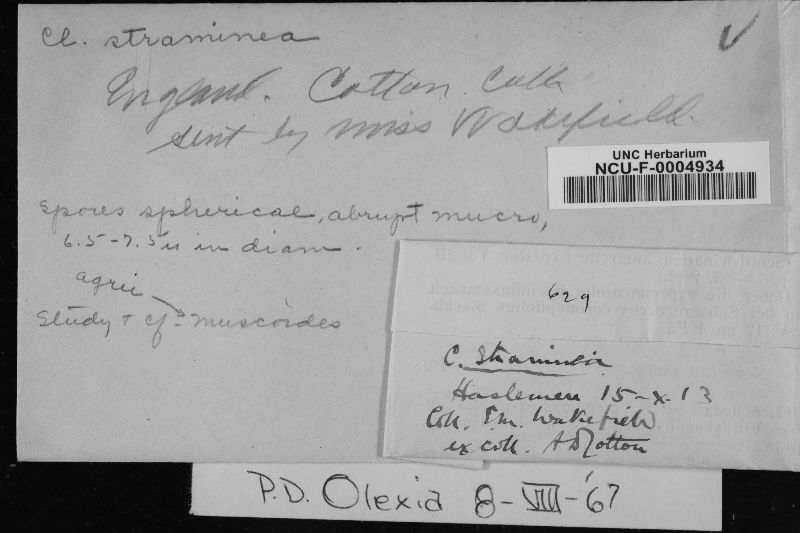 Cl. straminea
England. Cotton. Coll.
sent by Miss Wakefield.
UNC Herbarium
NCU-F-0004934
Spores spherical, abrupt mucro,
6.5-7.5u in diam.
agric
Study + cf = muscoides
629
C. straminea
Haslemere 15-x-13
Coll. E.M. Wakefield
ex coll. A D Cotton
P.D. Olexia 8-VIII-'67